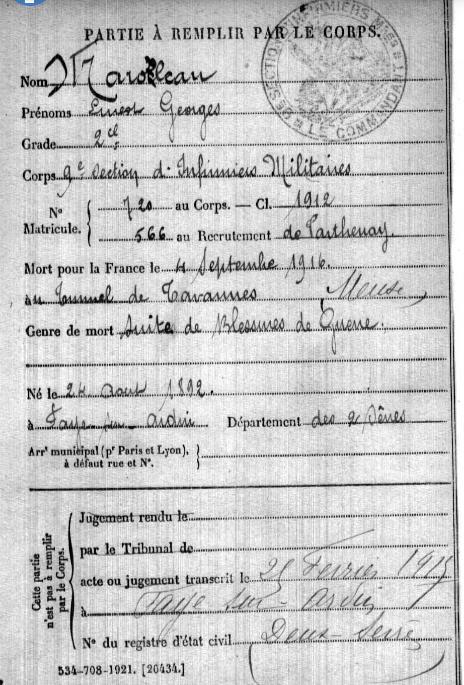 PARTIE À REMPLIR PAR LE CORPS.
SECTION D'INFIRMIERS MILres
LE COMMANDANT
Nom Marolleau
Prénoms Ernest Georges
Grade 2e cl.
Corps 9e Section d'Infirmiers Militaires
No Matricule. { 720 au Corps. — Cl. 1912
566 au Recrutement de Parthenay
Mort pour la France le 4 Septembre 1916.
à au Tunnel de Tavannes (Meuse)
Genre de mort Suite de Blessures de Guerre.
Né le 24 Août 1892
à Faye-sur-Ardin Département des 2 Sèvres
Arrt municipal (pr Paris et Lyon), à défaut rue et No. {
Cette partie n'est pas à remplir par le Corps.
Jugement rendu le
par le Tribunal de
acte ou jugement transcrit le Février
à Faye sur-Ardin
No du registre d'état civil Deux-Sèvres
534-708-1921. [26434.]